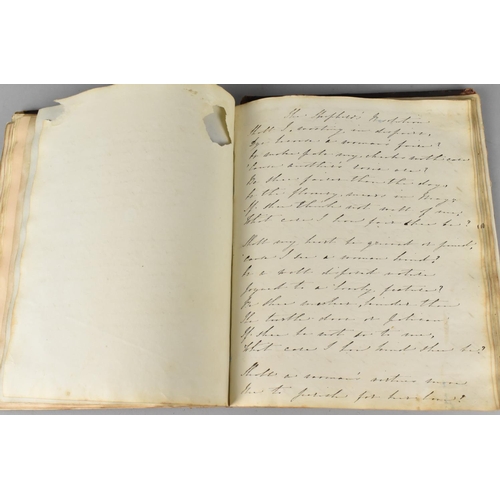 The Shepherd's Resolution
Shall I, wasting in despair,
Dye because a woman's fair?
Or make pale my cheeks with care
'Cause another's rosie are?
Be she fairer than the day,
Or the flowery meads in May;
If she think not well of me,
What care I how fair she be?
Shall my heart be grieved or pined,
'cause I see a woman kind?
Or a well disposed nature
Joyned to a lovely feature?
Be she meeker, kinder than
The turtle dove or pelican
If she be not so to me,
What care I how kind she be?
Shall a woman's virtues move
Me to perish for her love?